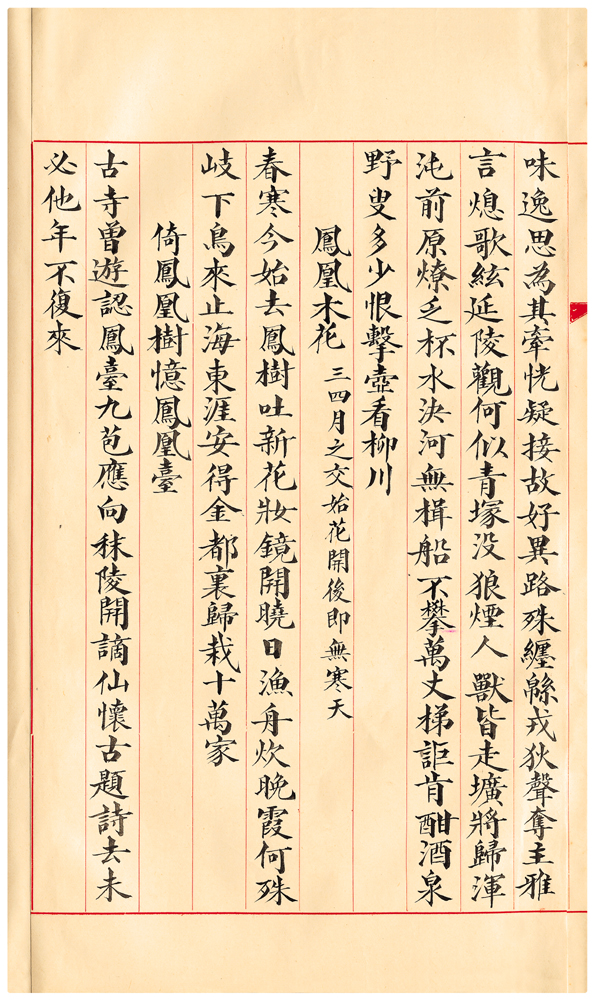 味逸思為其牽恍疑接故好異路殊纏緜戎狄聲奪主雅
言熄歌絃延陵觀何似青塚没狼煙人獸皆走壙將歸渾
沌前原燎乏杯水決河無楫船不攀萬丈梯詎肯酣酒泉
野叟多少恨擊壺看柳川
鳳凰木花 三四月之交始花開後即無寒天
春寒今始去鳳樹吐新花妝鏡開曉日漁舟炊晚霞何殊
岐下鳥來止海東涯安得金都裏歸栽十萬家
倚鳳凰樹憶鳳凰臺
古寺曾遊認鳳臺九苞應向秣陵開謫仙懷古題詩去未
必他年不復來